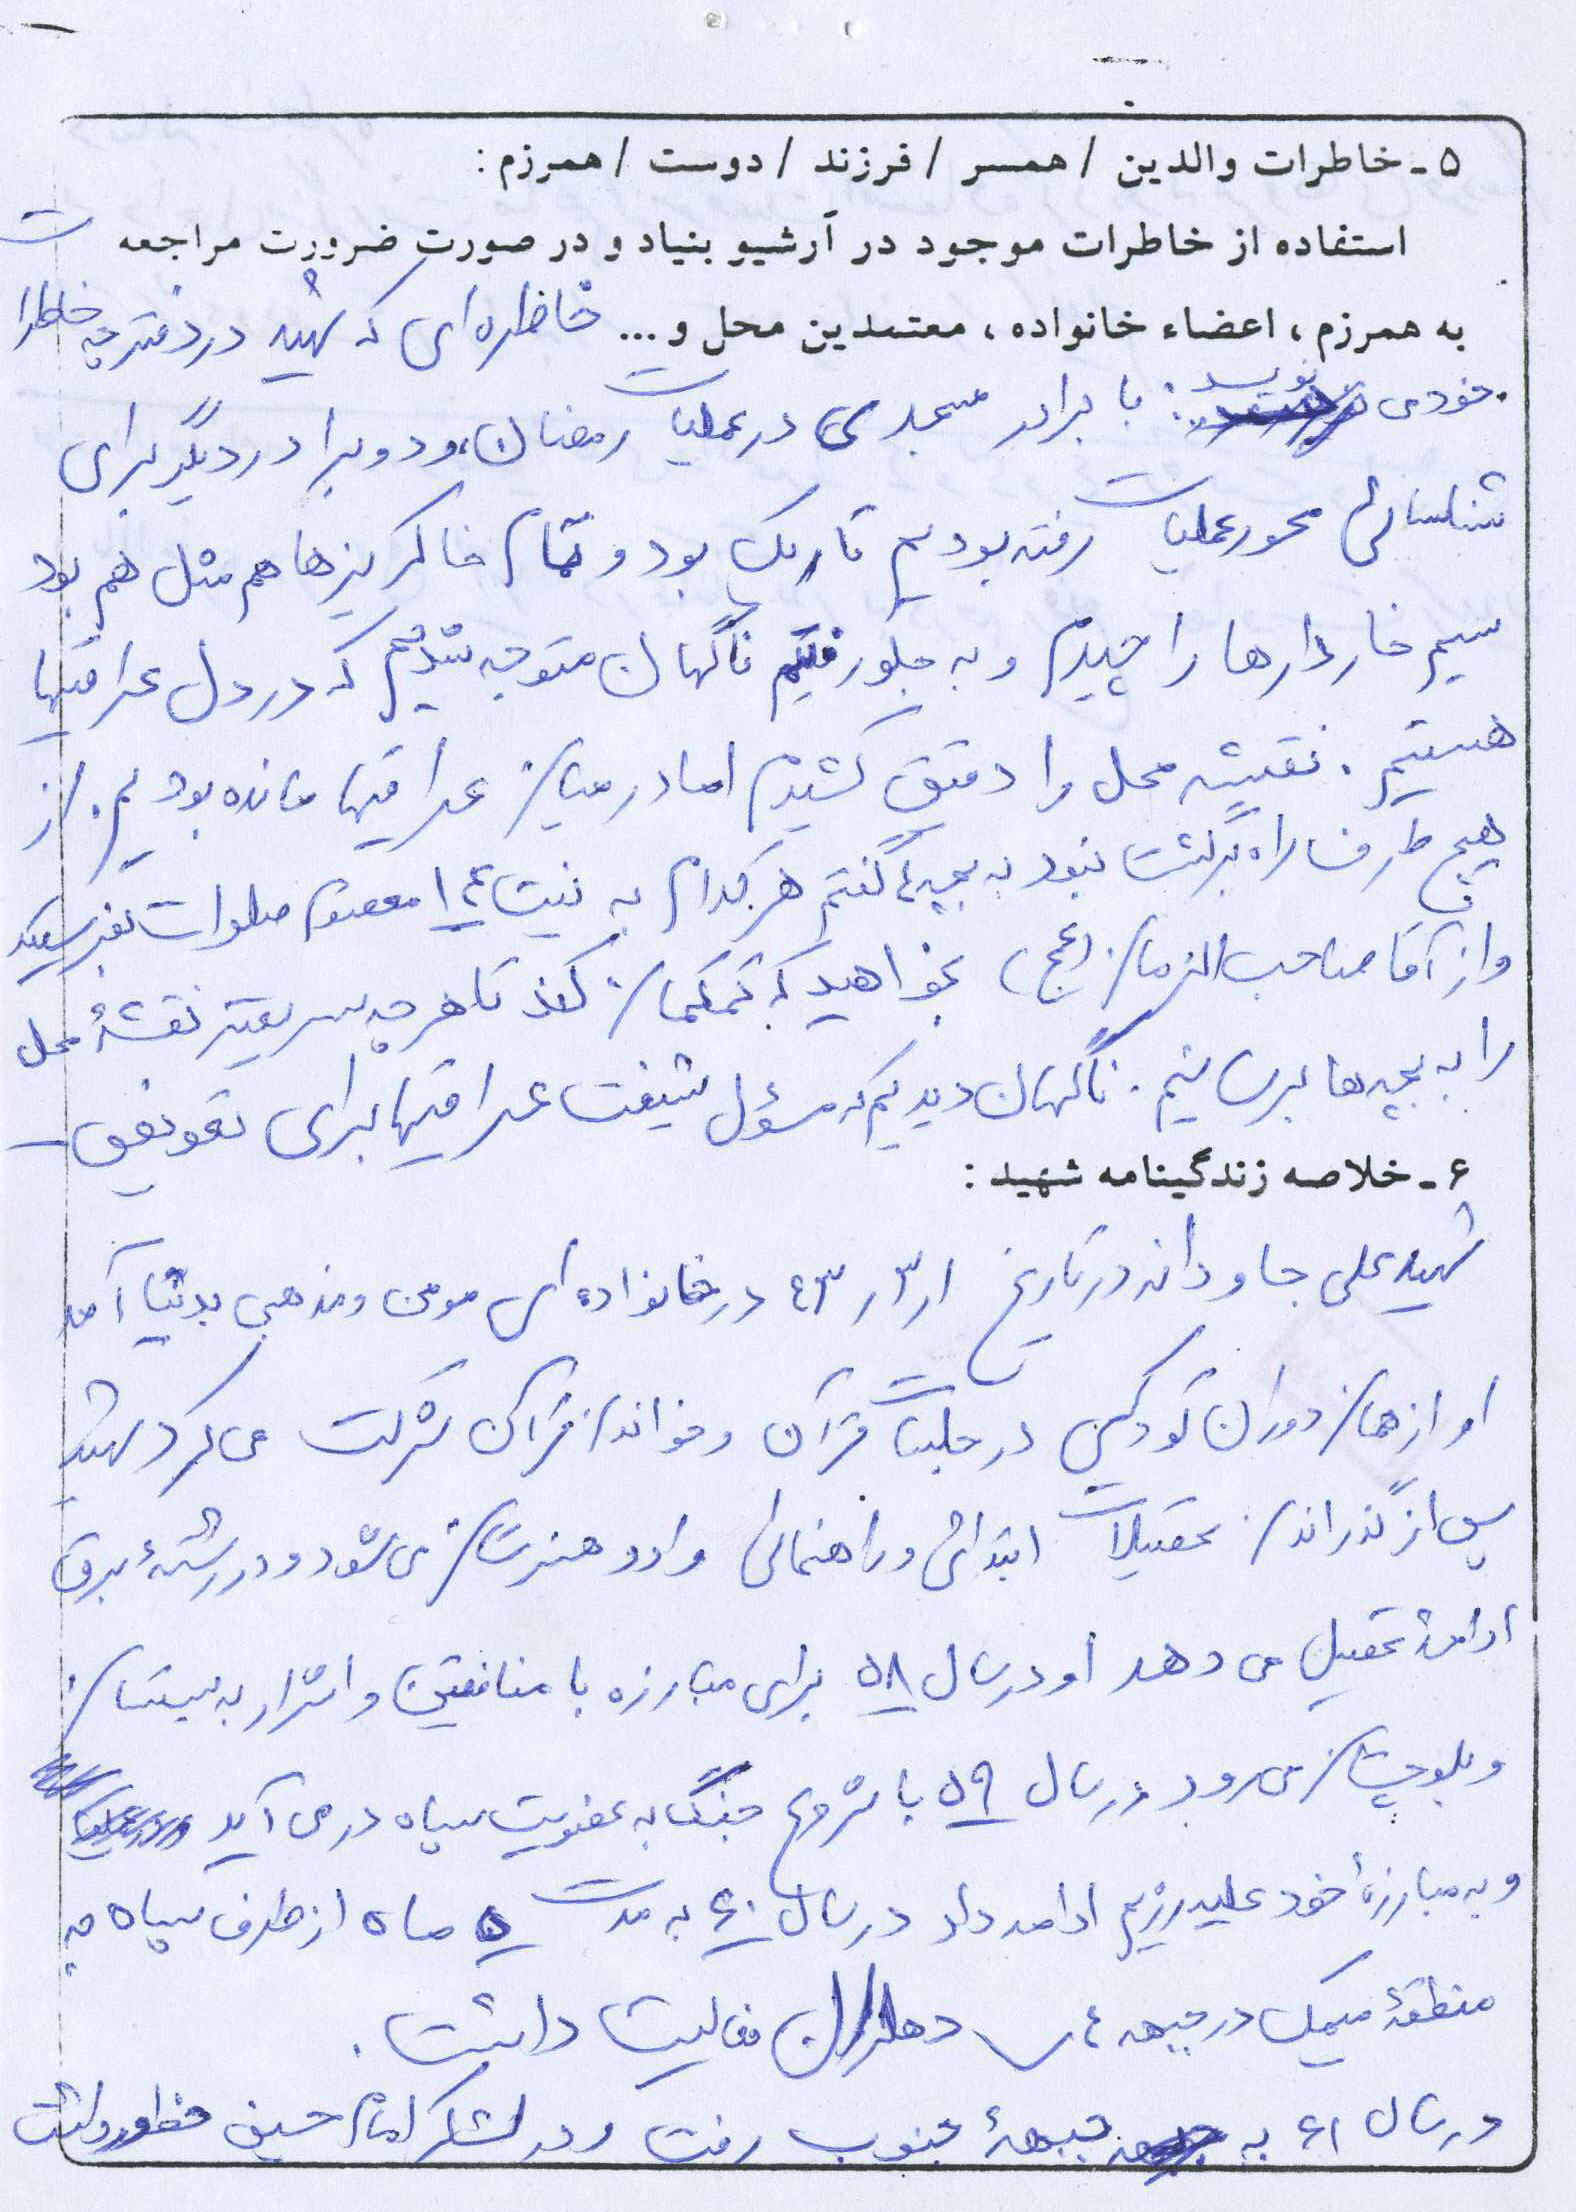 ۵ ـ خاطرات والدین / همسر / فرزند / دوست / همرزم :
استفاده از خاطرات موجود در آرشیو بنیاد و در صورت ضرورت مراجعه
به همرزم ، اعضاء خانواده ، معتمدین محل و ... خاطره ای که شهید در دفترچه خاطرات
خودمی نویسد : با برادر مسجدی در عملیات رمضان، و دو برادر دیگر برای
شناسائی محور عملیات رفته بودیم تاریک بود و تمام خاکریزها هم مثل هم بود
سیم خاردارها را چیدیم و به جلو رفتیم ناگهان متوجه شدیم که در دل عراقیها
هستیم . نقشه محل را دقیق کشیدیم اما در میان عراقیها مانده بودیم . از
هیچ طرف راه برگشت نبود به بچه ها گفتم هر کدام به نیت ۱۴ معصوم صلوات بفرستید
و از آقا صاحب الزمان (عج) بخواهید که کمکمان کند تا هر چه سریعتر نقشهٔ محل
را به بچه ها برسانیم . ناگهان دیدیم که مسؤل شیفت عراقیها برای تعویض ـ
۶ ـ خلاصه زندگینامه شهید :
شهید علی جاودانه در تاریخ ۴۳/۳/۱ در خانواده ای مومن و مذهبی بدنیا آمد
او از همان دوران کودکی در جلسات قرآن و خواندن قرآن شرکت می کرد شهید
پس از گذراندن تحصیلات ابتدائی و راهنمائی وارد هنرستان می شود و در رشتهٔ برق
ادامهٔ تحصیل می دهد او در سال ۵۸ برای مبارزه با منافقین و اشرار به سیستان
و بلوچستان می رود در سال ۵۹ با شروع جنگ به عضویت سپاه در می آید
و به مبارزهٔ خود علیه رژیم ادامه داد در سال ۶۰ به مدت ۵ ماه از طرف سپاه به
منطقهٔ میمک در جبهه دهلران فعالیت داشت .
در سال ۶۱ به جبههٔ جنوب رفت و در لشکر امام حسین حضور داشت